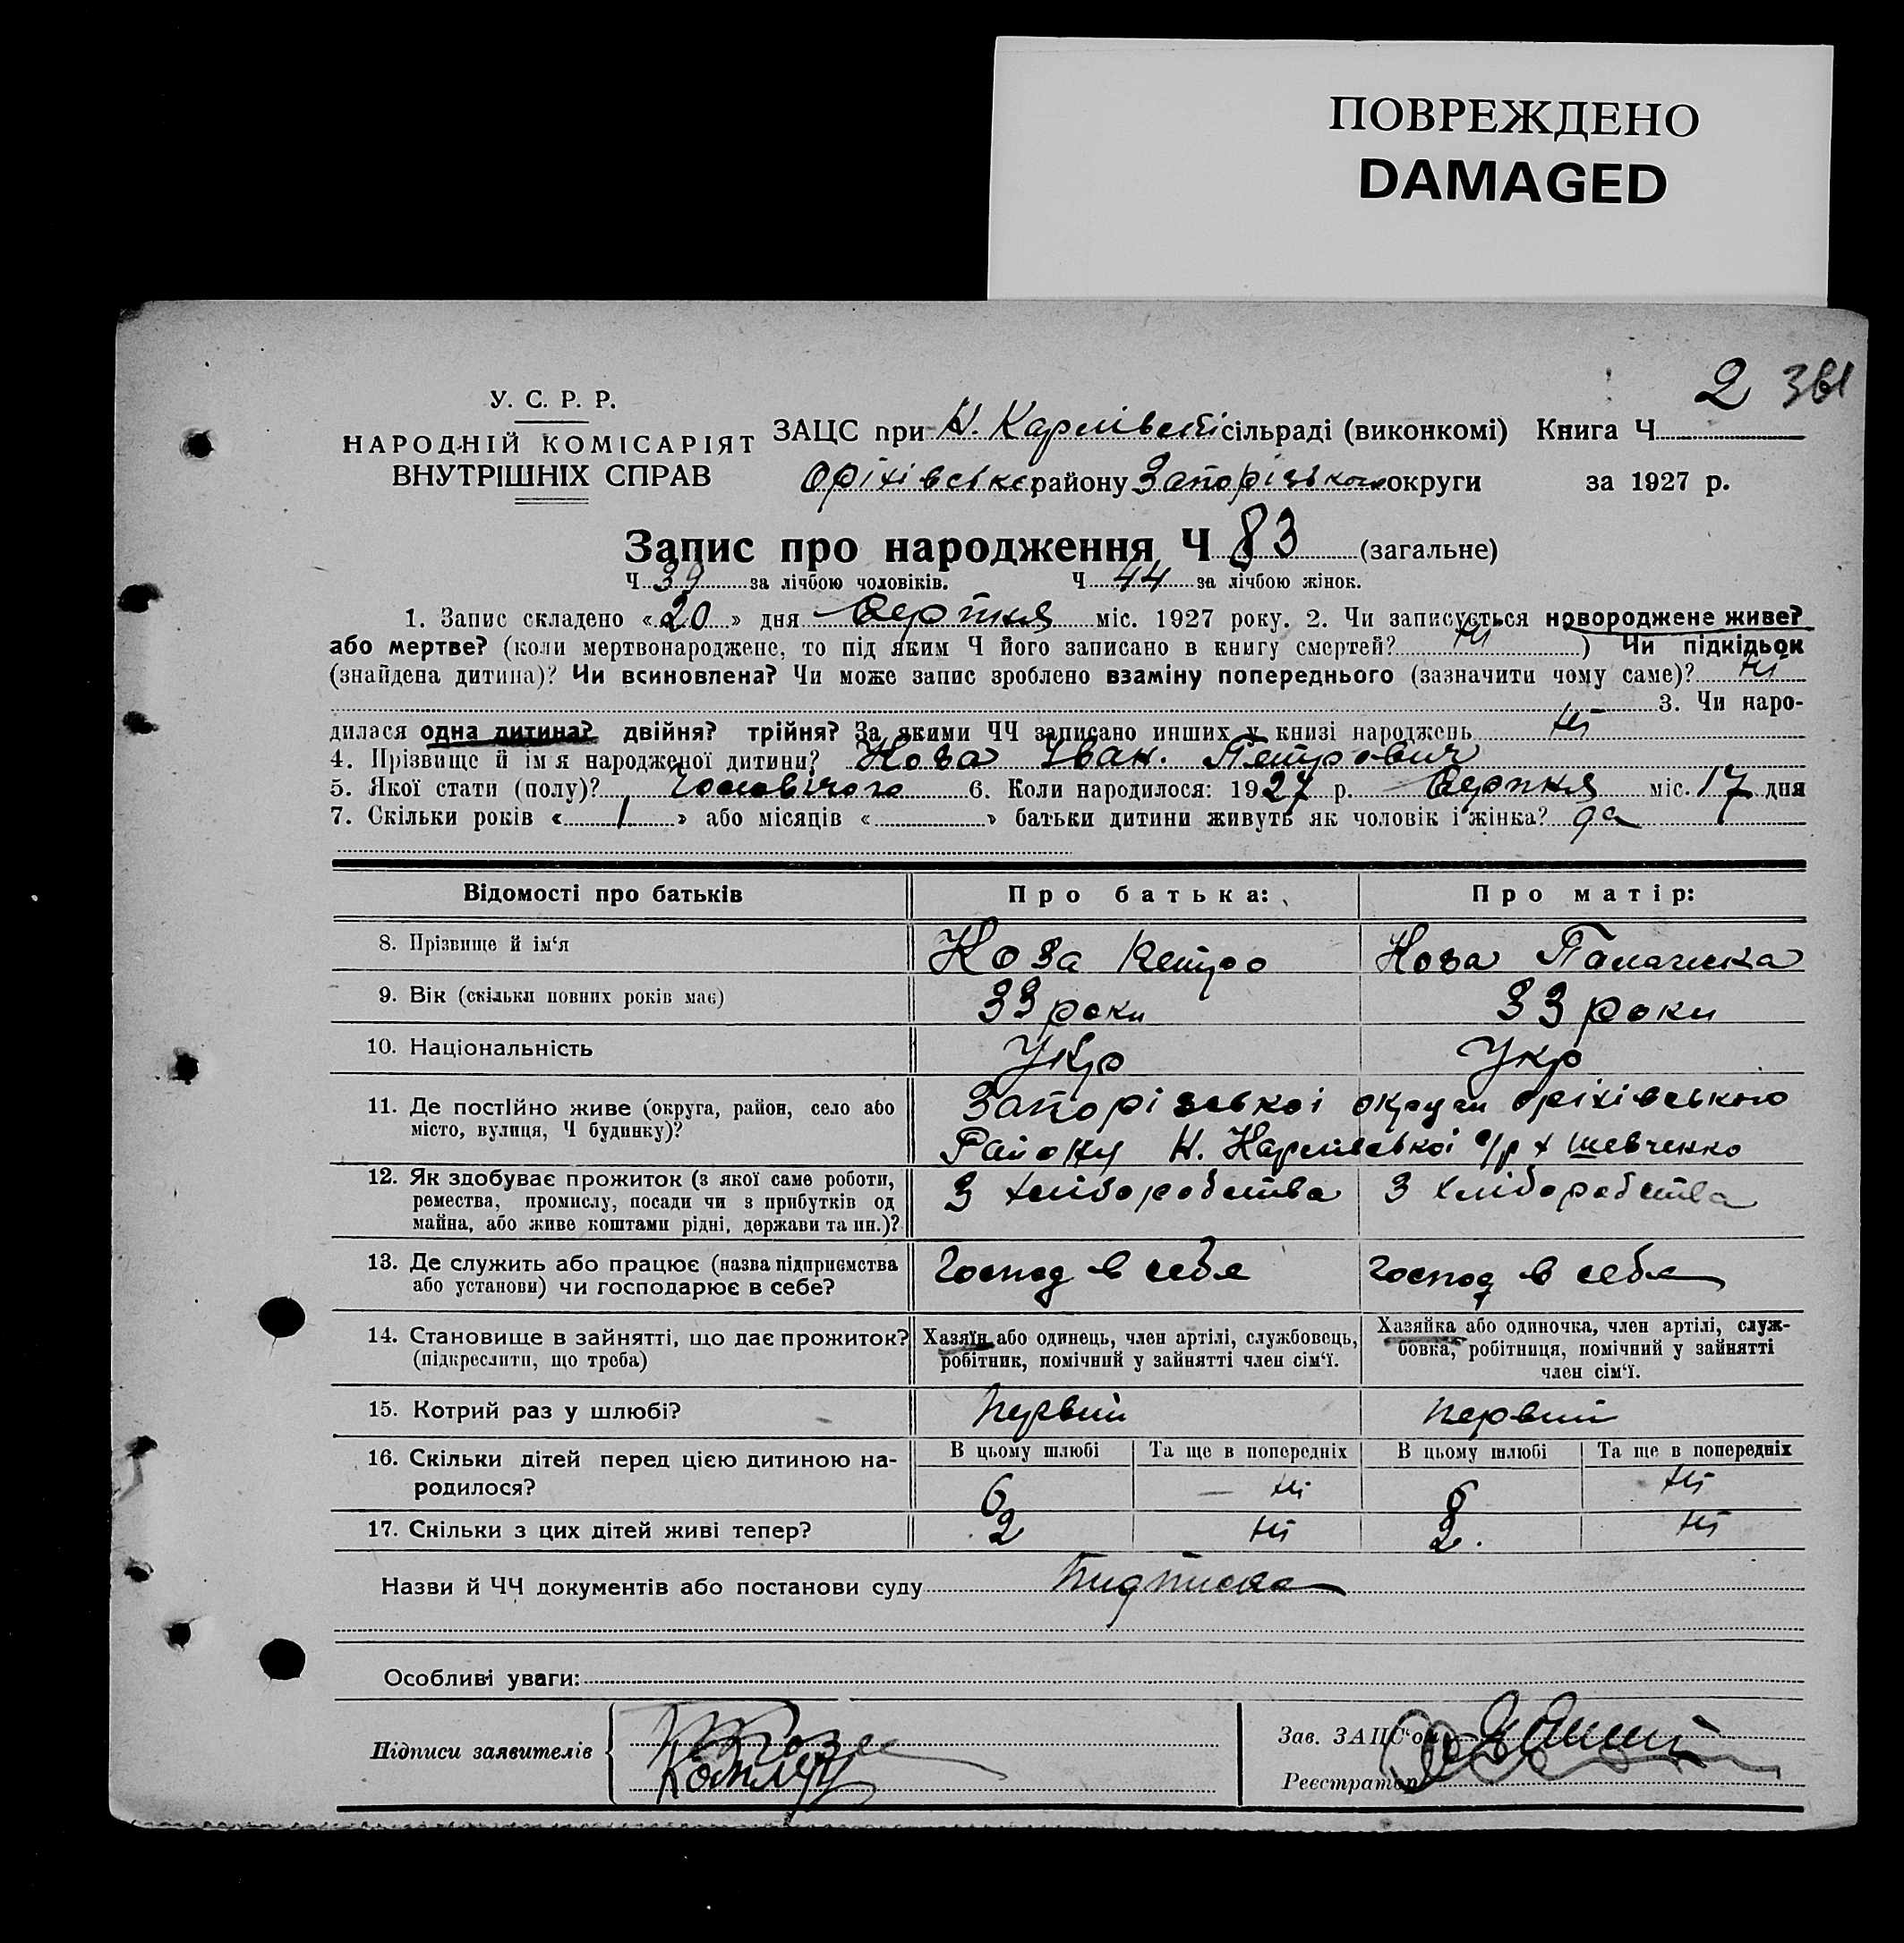 ПОВРЕЖДЕНО
DAMAGED
2 361
У. С. Р. Р.
НАРОДНІЙ КОМІСАРІЯТ
ВНУТРІШНІХ СПРАВ
ЗАЦС при Н. Карлівській сільраді (виконкомі) Книга Ч
Оріхівськ. району Запорізької округи за 1927 р.
Запис про народження Ч 83 (загальне)
Ч 39 за лічбою чоловіків. Ч 44 за лічбою жінок.
1. Запис складено «20» дня Серпня міс. 1927 року. 2. Чи записується новороджене живе?
або мертве? (коли мертвонароджене, то під яким Ч його записано в книгу смертей? ні ) Чи підкідьок
(знайдена дитина)? Чи всиновлена? Чи може запис зроблено взаміну попереднього (зазначити чому саме)? ні
3. Чи наро-
дилася одна дитина? двійня? трійня? За якими ЧЧ записано инших у книзі народжень ні
4. Прізвище й ім'я народженої дитини? Коза Іван. Петрович
5. Якої стати (полу)? Чоловічого 6. Коли народилося: 1927 р. Серпня міс. 17 дня
7. Скільки років « 1 » або місяців « » батьки дитини живуть як чоловік і жінка? да
Відомості про батьків Про батька: Про матір:
8. Прізвище й ім‘я Коза Петро Коза Палажка
9. Вік (скільки повних років має) 33 роки 33 роки
10. Національність Укр Укр
11. Де постійно живе (округа, район, село або Запорізької округи Оріхівського
місто, вулиця, Ч будинку)? Району Н. Карлівської с/р х Шевченко
12. Як здобуває прожиток (з якої саме роботи, З хліборобства З хліборобства
ремества, промислу, посади чи з прибутків од
майна, або живе коштами рідні, держави та ин.)?
13. Де служить або працює (назва підприємства Господ в себе Господ в себе
або установи) чи господарює в себе?
14. Становище в зайнятті, що дає прожиток? Хазяїн або одинець, член артілі, службовець, Хазяйка або одиночка, член артілі, служ-
(підкреслити, що треба) робітник, помічний у зайнятті член сім‘ї. бовка, робітниця, помічний у зайнятті
член сім‘ї.
15. Котрий раз у шлюбі? первий первий
16. Скільки дітей перед цією дитиною на- В цьому шлюбі Та ще в попередніх В цьому шлюбі Та ще в попередніх
родилося? 6 ні 6 ні
17. Скільки з цих дітей живі тепер? 2 ні 2. ні
Назви й ЧЧ документів або постанови суду Підписка
Особливі уваги:
Підписи заявителів
Зав. ЗАЦС‘ом
Реєстратор